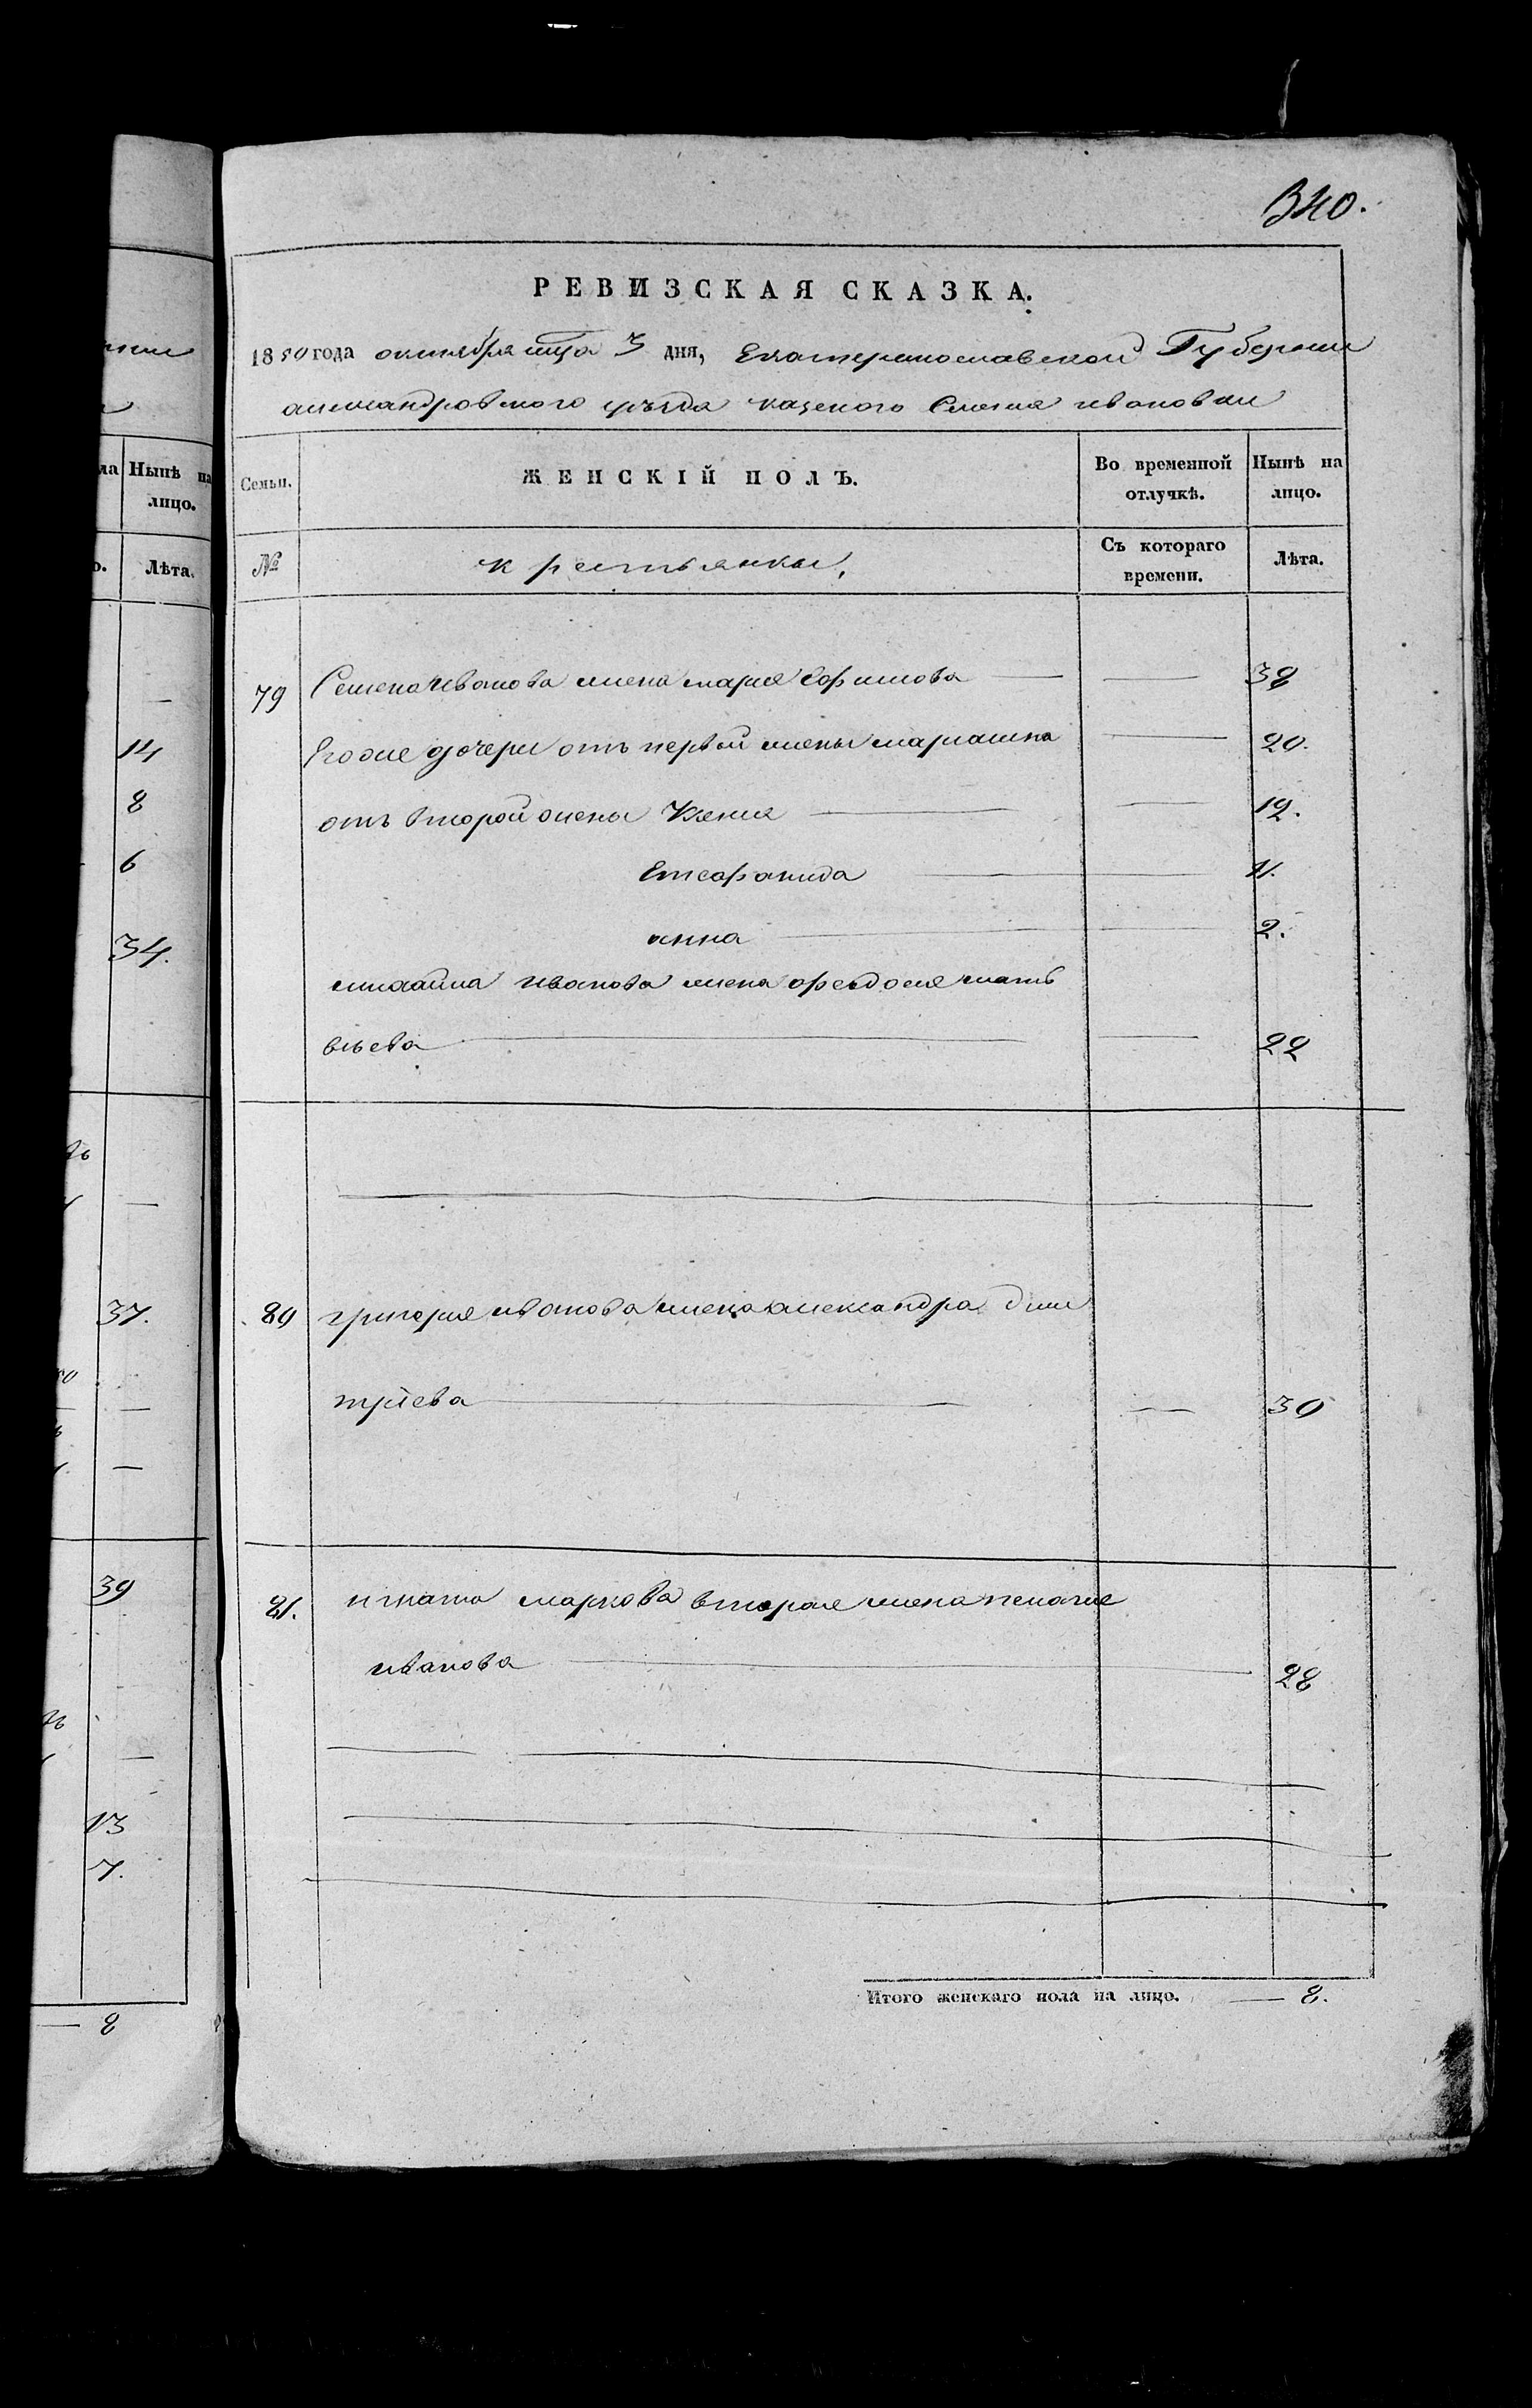 340.
РЕВИЗСКАЯ СКАЗКА.
1850 года октября мца 3 дня, Екатеринославской Губернии
александровского уѣзда казеного Селения ивановки
Семьи. ЖЕНСКІЙ ПОЛЪ. Во временной отлучкѣ. Нынѣ на лицо.
№ крестьянки, Съ котораго времени. Лѣта.
79 Семена Иванова жена мария Ефимова 38
Егоже дочери отъ первой жены мариамна 20.
отъ второй жены Ксения 12.
11.
анна 2.
михайла иванова жена феодосия матъ
вѣева 22
80 григория иванова жена александра дми
тріева 30
81. игната маркова вторая жена пелагия
иванова 28
Итого женскаго пола на лицо. 8.
Нынѣ на лицо.
Лѣта.
14
8
6
34.
37.
39
13
7.
8